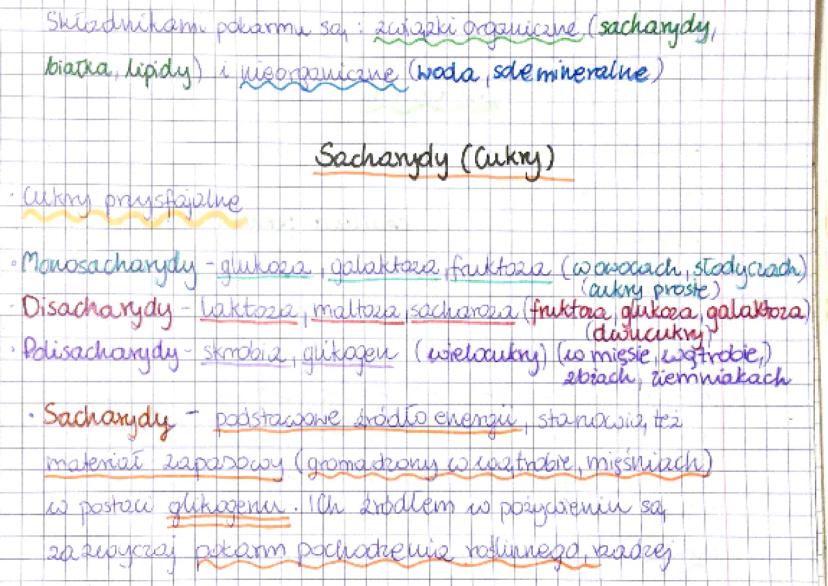 Składnikami pokarmu są: związki organiczne (sacharydy,
białka, lipidy) i nieorganiczne (woda, sole mineralne)
Sacharydy (Cukry)
· Cukry przysfajalne
· Monosacharydy - glukoza, galaktoza, fruktoza (w owocach, słodyczach)
(cukry proste)
Disacharydy - laktoza, maltoza, sacharoza (fruktoza, glukoza, galaktoza)
(dwucukry)
· Polisacharydy - skrobia, glikogen (wielocukry) (w mięsie, wątrobie,)
zbożach, ziemniakach
· Sacharydy - podstawowe źródło energii, stanowią też
materiał zapasowy (gromadzony w wątrobie, mięśniach)
w postaci glikogenu. Ich źródłem w pożywieniu są
zazwyczaj pokarm pochodzenia roślinnego, rzadziej